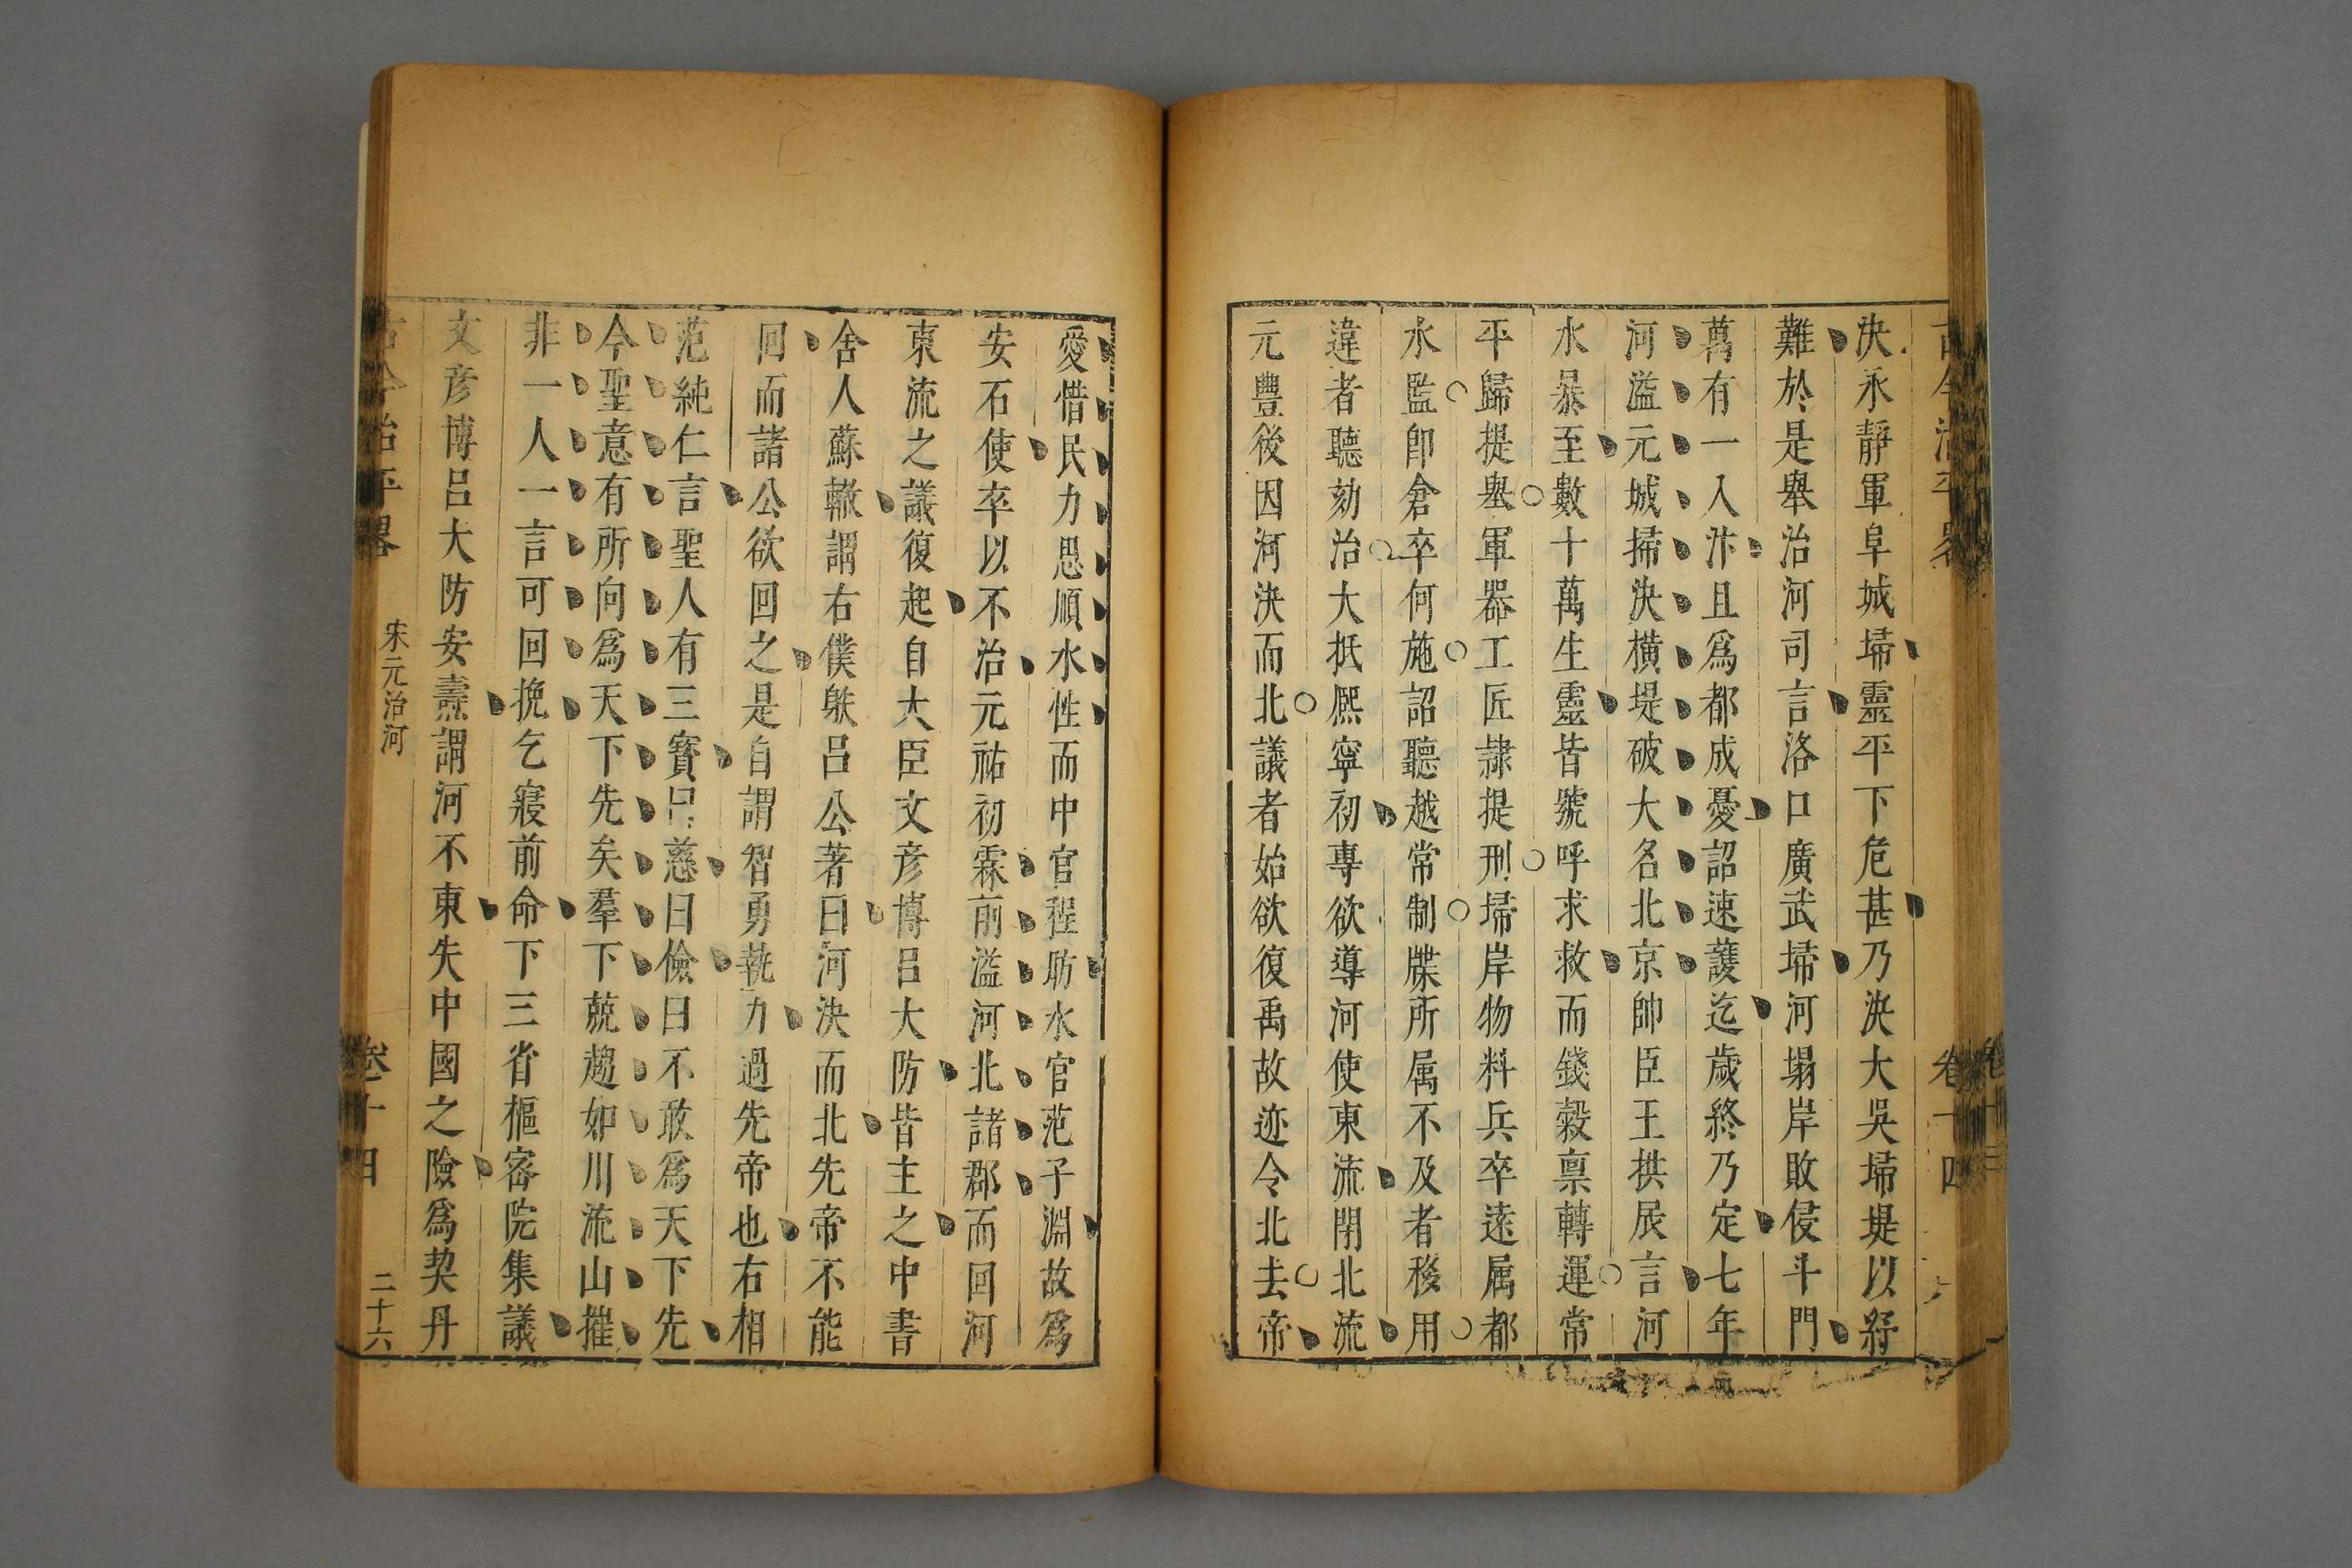 古今治平畧
卷十四
決永靜軍阜城埽靈平下危甚乃決大吳埽堤以紓
難於是舉治河司言洛口廣武埽河塌岸敗侵斗門
萬有一入汴且爲都成憂詔速護迄歲終乃定七年
河溢元城掃決橫堤破大名北京帥臣王拱辰言河
水暴至數十萬生靈皆號呼求救而錢穀禀轉運常
平歸提舉軍器工匠隷提刑埽岸物料兵卒逺属都
水監卽倉卒何施詔聽越常制牒所属不及者移用
違者聽劾治大抵熈寧初專欲導河使東流閉北流
元豐後因河決而北議者始欲復禹故迹令北去帝
愛惜民力思順水性而中官程昉水官范子淵故爲
安石使卒以不治元祐初霖雨溢河北諸郡而回河
東流之議復起自大臣文彦博呂大防皆主之中書
舍人蘇轍謂右僕䠶呂公著曰河決而北先帝不能
回而諸公欲回之是自謂智勇執力過先帝也右相
范純仁言聖人有三寶曰慈曰儉曰不敢爲天下先
今聖意有所向爲天下先矣羣下競趨如川流山摧
非一人一言可回挽乞寢前命下三省樞密院集議
文彦博呂大防安燾謂河不東失中國之險爲契丹
古今治平畧
宋元治河
卷十四
二十六